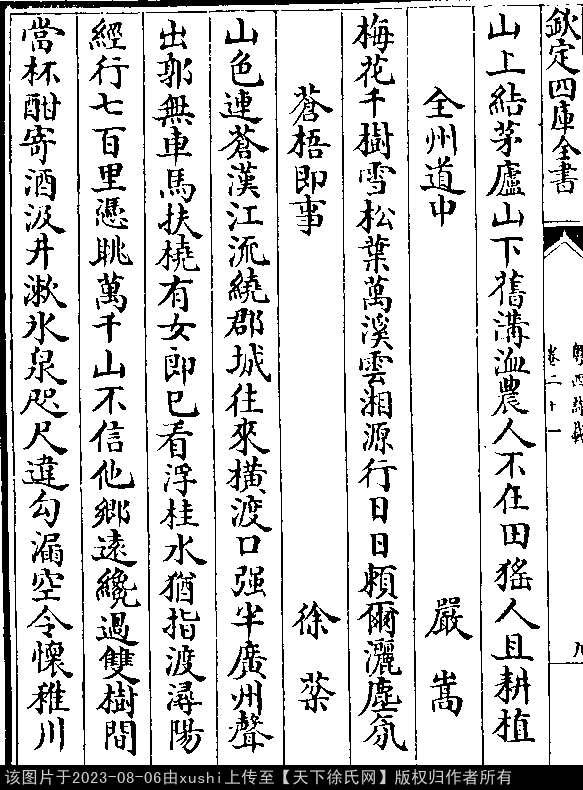 欽定四庫全書
粤西詩載
卷二十一
山上結茅廬山下舊溝洫農人不在田猺人且耕植
全州道中
嚴嵩
梅花千樹雪松葉萬溪雲湘源行日日頼爾灑塵氛
蒼梧即事
徐棻
山色連蒼漢江流繞郡城往來橫渡口强半廣州聲
出郭無車馬扶橈有女郎已看浮桂水猶指渡潯陽
經行七百里憑眺萬千山不信他鄉逺纔過雙樹間
當杯酣寄酒汲井漱氷泉咫尺違勾漏空令懷稚川
该图片于2023-08-06由xushi上传至【天下徐氏网】版权归作者所有